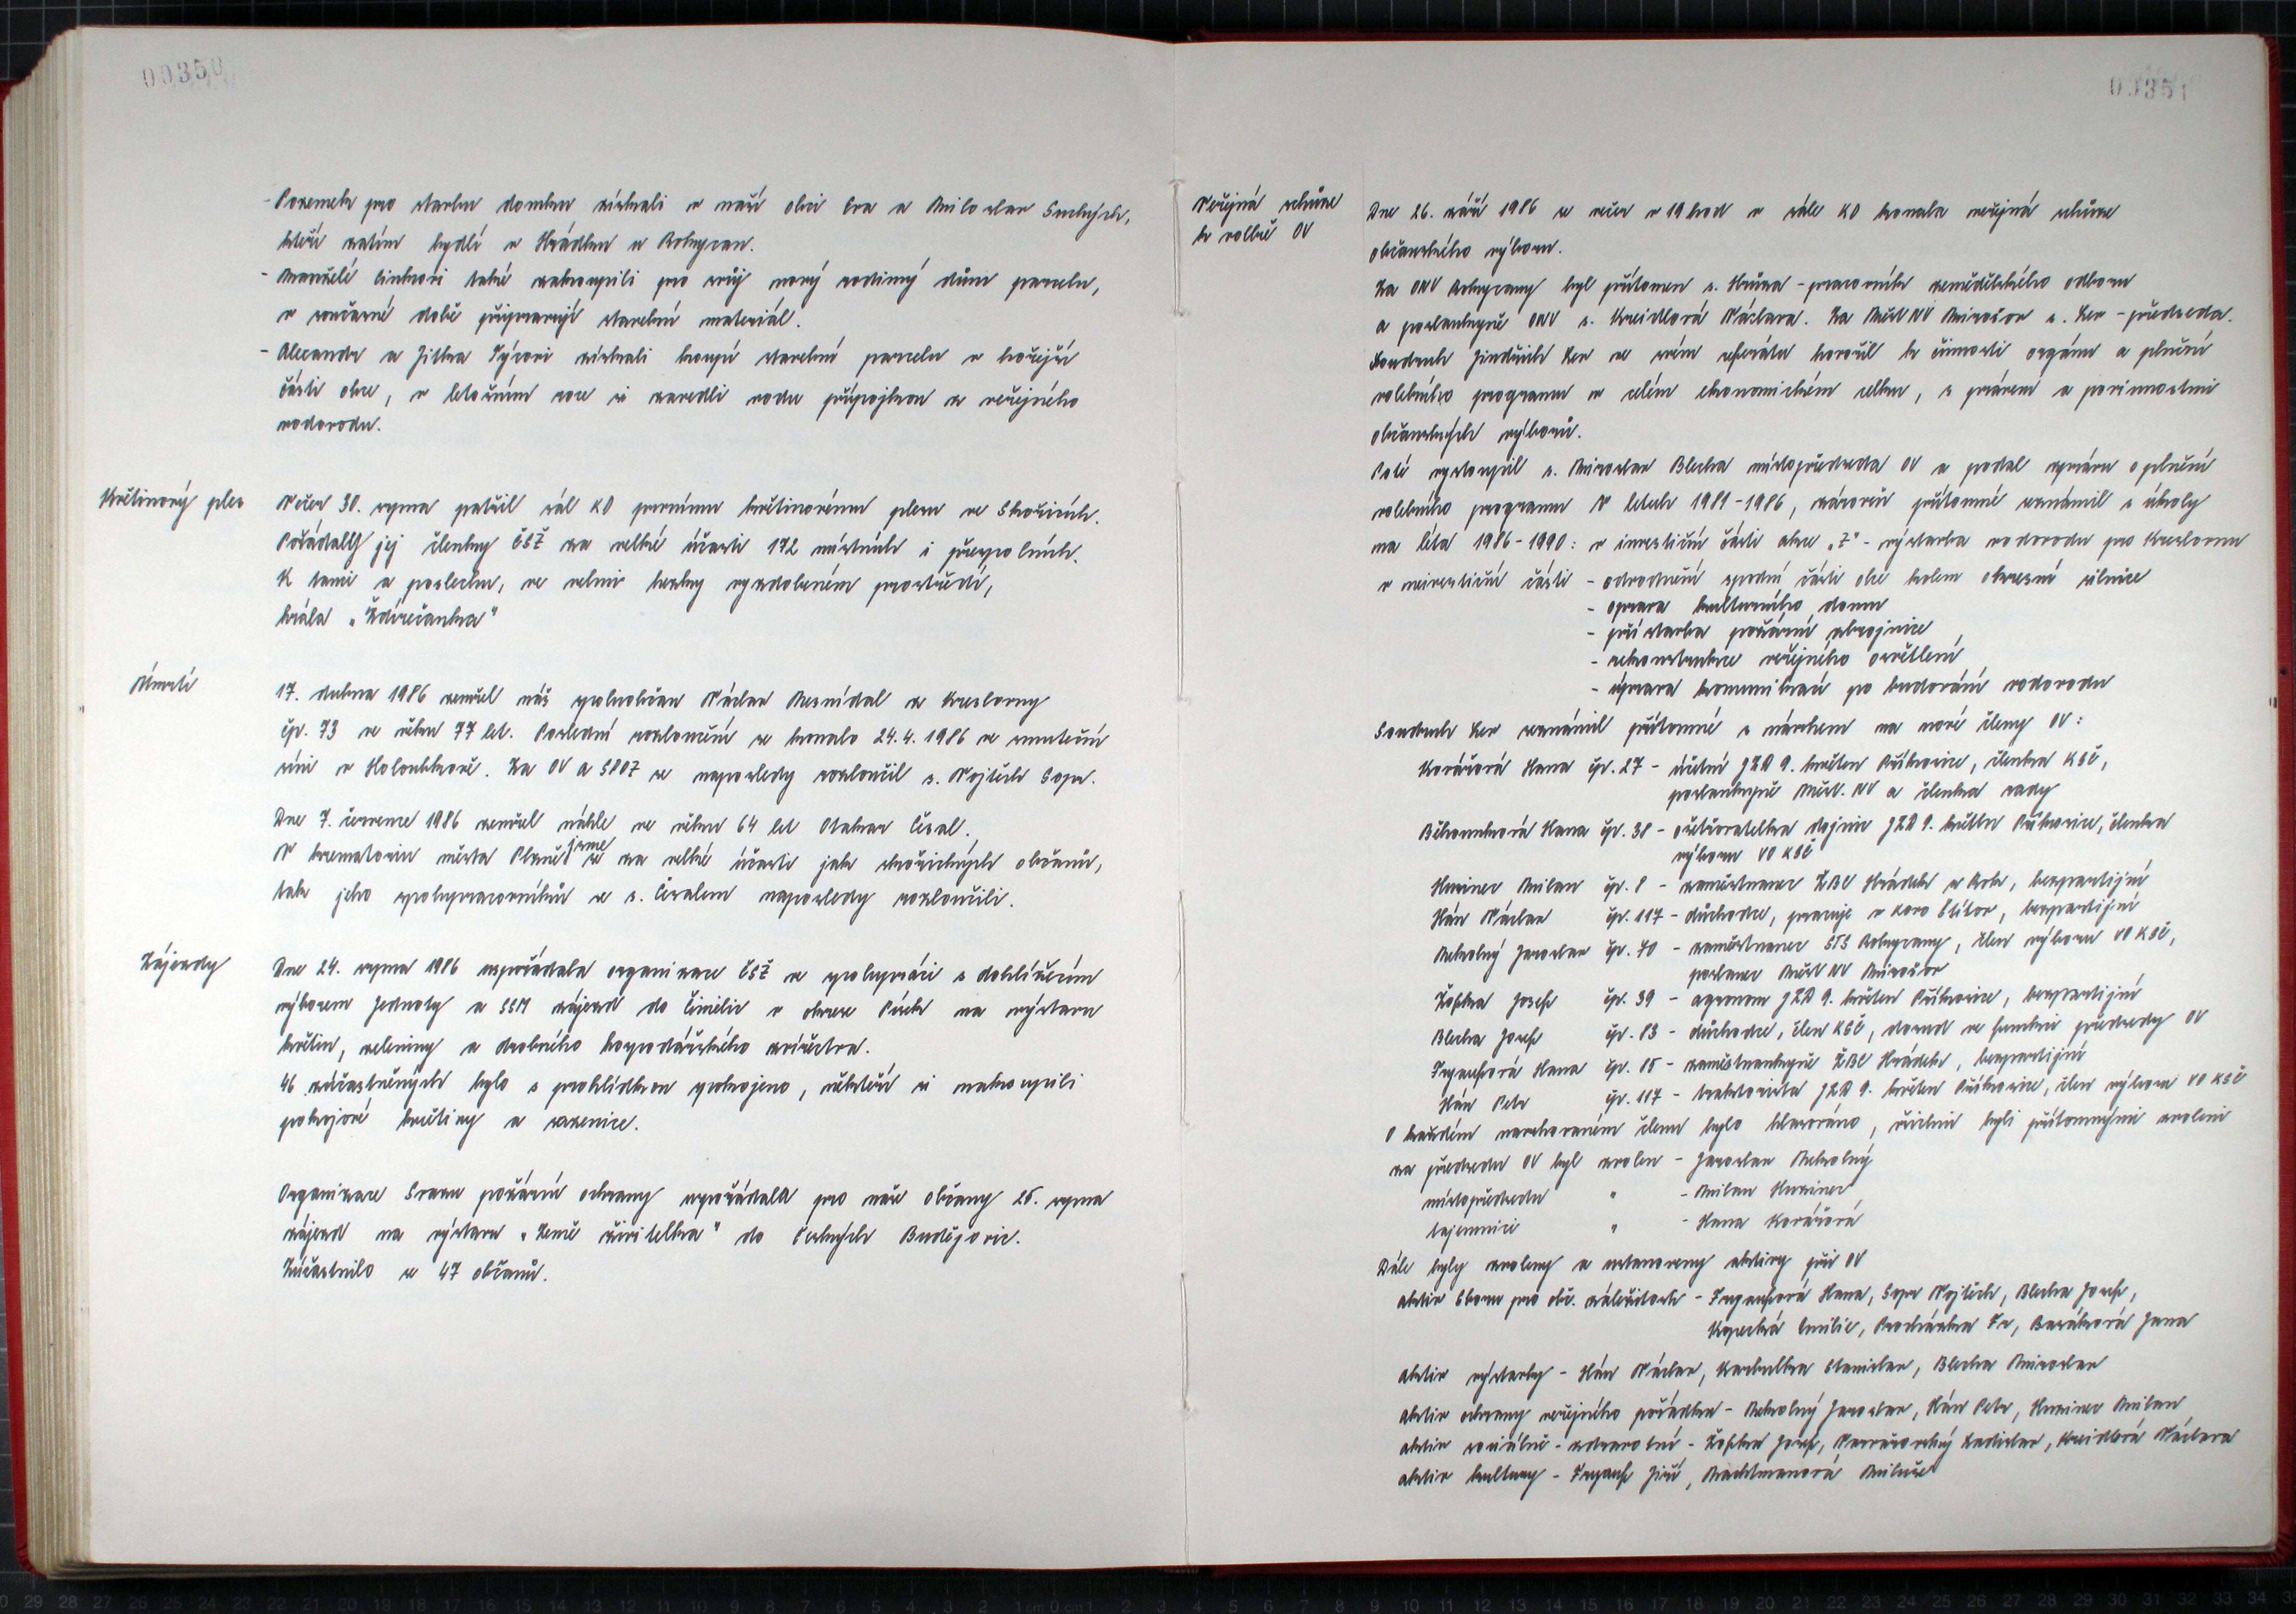 00350
- Pozemek pro stavbu domku získali v naší obci Eva a Miloslav Suchých,
kteří zatím bydlí v Hrádku u Rokycan.
- Manželé Cinkovi také zakoupili pro svůj nový rodinný dům parcelu,
v současné době připravují stavební materiál.
- Alexandr a Jitka Sýcovi získali koupí stavební parcelu v hořejší
části obce, v letošním roce si zavedli vodu přípojkou z veřejného
vodovodu.
Květinový ples
Večer 30. srpna patřil sál KD prvnímu květinovému plesu ve Skořicích.
Pořádaly jej členky ČSŽ za velké účasti 172 místních i přespolních.
K tanci a poslechu, ve velmi hezky vyzdobeném prostředí,
hrála „Ždírečanka"
Úmrtí
17. dubna 1986 zemřel náš spoluobčan Václav Nesnídal z Kreslovny
čp. 73 ve věku 77 let. Poslední rozloučení se konalo 24.4. 1986 ve smuteční
síni v Holoubkově. Za OV a SPOZ se naposledy rozloučil s. Vojtěch Sopr.
Dne 7. července 1986 zemřel náhle ve věku 64 let Otakar Císal.
V krematoriu města Plzně jsme se za velké účasti jak skořických občanů,
tak jeho spolupracovníků se s. Císalem naposledy rozloučili.
Zájezdy
Dne 24. srpna 1986 uspořádala organizace ČSŽ ve spolupráci s dohlížecím
výborem Jednoty a SSM zájezd do Čimelic v okrese Písek na výstavu
květin, zeleniny a drobného hospodářského zvířectva.
46 zúčastněných bylo s prohlídkou spokojeno, někteří si nakoupili
pokojové květiny a sazenice.
Organizace Svazu požární ochrany uspořádala pro naše občany 25. srpna
zájezd na výstavu „Země živitelka" do Českých Budějovic.
Zúčastnilo se 47 občanů.
00351
Veřejná schůze
k volbě OV
Dne 26. září 1986 se večer v 19 hod v sále KD konala veřejná schůze
občanského výboru.
Za ONV Rokycany byl přítomen s. Hůrka - pracovník zemědělského odboru
a poslankyně ONV s. Kreidlová Václava. Za Měst NV Mirošov s. Ker - předseda.
Soudruh Jindřich Ker ve svém referátu hovořil k činnosti orgánu a plnění
volebního programu v celém ekonomickém celku, s právem a povinnostmi
občanských výborů.
Poté vystoupil s. Miroslav Blecha místopředseda OV a podal zprávu o plnění
volebního programu V letech 1981-1986, zároveň přítomné seznámil s úkoly
na léta 1986-1990: v investiční části akce „Z" - výstavba vodovodu pro Kreslovnu
v neinvestiční části - odvodnění spodní části obce kolem okresní silnice
- oprava kulturního domu
- přístavba požární zbrojnice
- rekonstrukce veřejného osvětlení
- úprava komunikací po budování vodovodu
Soudruh Ker seznámil přítomné s návrhem na nové členy OV:
Kovářová Hana čp. 27 - účetní JZD 9. květen Příkosice, členka KSČ,
poslankyně Měst. NV a členka rady
Běhounková Hana čp. 38 - ošetřovatelka dojnic JZD 9. květen Příkosice, členka
výboru VO KSČ
Husinec Milan čp. 8 - zaměstnanec ŽBC Hrádek u Rok, bezpartijní
Hán Václav čp. 117 - důchodce, pracuje v Kovo Stitov, bezpartijní
Nekolný Jaroslav čp. 70 - zaměstnanec STS Rokycany, člen výboru VO KSČ,
poslanec Měst NV Mirošov
Žofka Josef čp. 39 - agronom JZD 9. květen Příkosice, bezpartijní
Blecha Josef čp. 83 - důchodce, člen KSČ, dosud ve funkci předsedy OV
Trynerová Hana čp. 85 - zaměstnankyně ŽBC Hrádek, bezpartijní
Hán Petr čp. 117 - traktorista JZD 9. květen Příkosice, člen výboru VO KSČ
O každém navrhovaném členu bylo hlasováno, všichni byli přítomnými zvoleni
za předsedu OV byl zvolen - Jaroslav Nekolný
místopředsedu " - Milan Husinec
tajemnici " - Hana Kovářová
Dále byly zvoleny a ustanoveny aktivy při OV
aktiv Sboru pro obč. záležitosti - Trynerová Hana, Sopr Vojtěch, Blecha Josef,
Kopecká Emilie, Procházka Fr, Barátková Jana
aktiv výstavby - Hán Václav, Krchulka Stanislav, Blecha Miroslav
aktiv ochrany veřejného pořádku - Nekolný Jaroslav, Hán Petr, Husinec Milan
aktiv sociálně-zdravotní - Žofka Josef, Ladislav, Kreidlová Václava
aktiv kultury - Jiří, Miluše